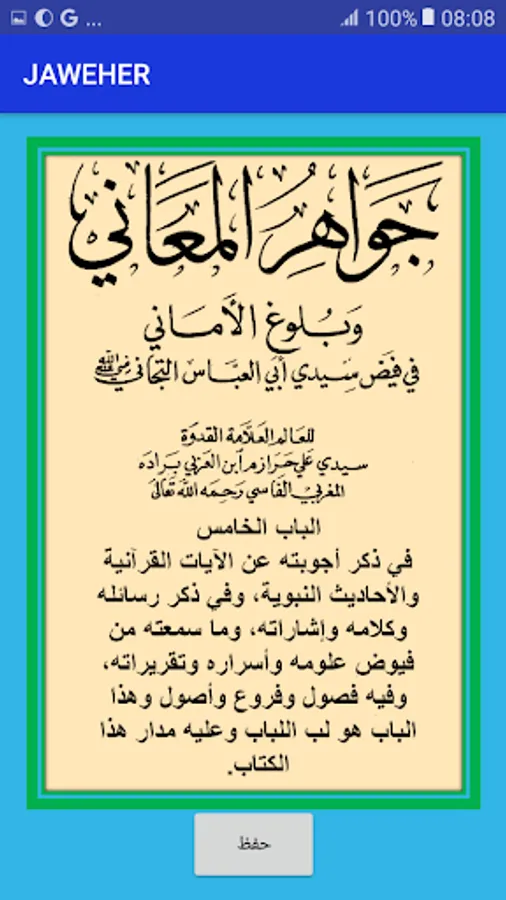 ... 100% 08:08
JAWEHER
جَوَاهِرُ المَعَاني
وَبُلوغ الأَمَاني
في فَيْض سِيدي أبي العبَّاس التجاني رضي الله عنه
للعالم العلّامة القدوَة
سيدي علي حَرازم ابن العَربي برادَه
المغربي الفَاسي رَحِمَه الله تعَالى
الباب الخامس
في ذكر أجوبته عن الآيات القرآنية
والأحاديث النبوية، وفي ذكر رسائله
وكلامه وإشاراته، وما سمعته من
فيوض علومه وأسراره وتقريراته،
وفيه فصول وفروع وأصول وهذا
الباب هو لب اللباب وعليه مدار هذا
الكتاب.
حفظ